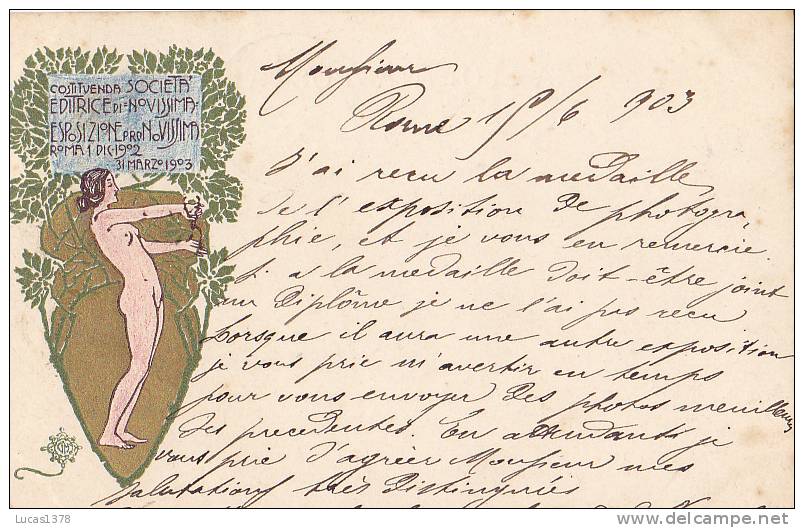 COSTITVENDA SOCIETA'
EDITRICE DI NOVISSIMA
ESPOSIZIONE PRO NOVISSIMA
ROMA 1 DIC. 1902
31 MARZO 1903
Monsieur
Rome 15/6 903
J'ai reçu la medaille
de l'exposition de photogra-
phie, et je vous en remercie.
Si a la medaille doit-être joint
un Diplôme je ne l'ai pas recu
Lorsque il aura une autre exposition
je vous prie m'avertir en temps
pour vous envoyer des photos meilleurs
des precedentes. En attendant je
vous prie d'agréer Monsieur mes
salutations très Distinguées
Lucas1378
delcampe.net